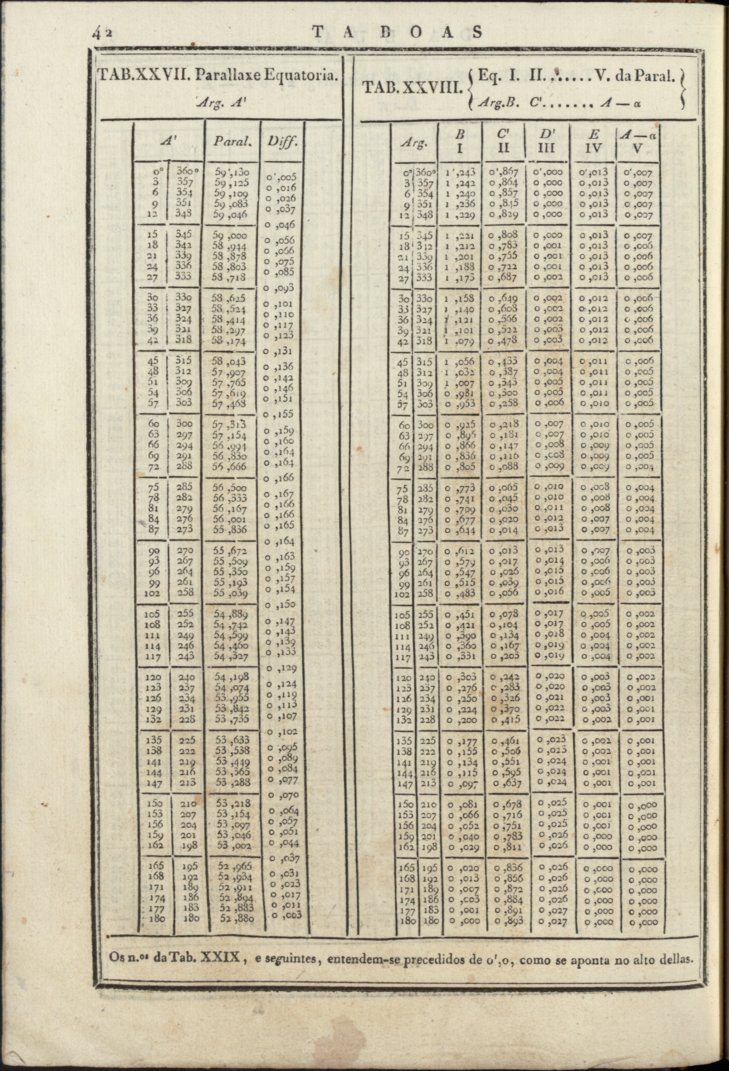 42 T A B O A S
TAB.XXVII. Parallaxe Equatoria.
Arg. A'
A' Paral. Diff.
0° 360° 59',130 0',005
3 357 59,125 0,016
6 354 59,109 0,026
9 351 59,083 0,037
12 348 59,046
0,046
15 345 59,000 0,056
18 342 58,944 0,066
21 339 58,878 0,075
24 336 58,803 0,085
27 333 58,718
0,093
30 330 58,625 0,101
33 327 58,524 0,110
36 324 58,414 0,117
39 321 58,297 0,123
42 318 58,174
0,131
45 315 58,043 0,136
48 312 57,907 0,142
51 309 57,765 0,146
54 306 57,619 0,151
57 303 57,468
0,155
60 300 57,313 0,159
63 297 57,154 0,160
66 294 56,994 0,164
69 291 56,830 0,164
72 288 56,666
0,166
75 285 56,500 0,167
78 282 56,333 0,166
81 279 56,167 0,166
84 276 56,001 0,165
87 273 55,836
0,164
90 270 55,672 0,163
93 267 55,509 0,159
96 264 55,350 0,157
99 261 55,193 0,154
102 258 55,039
0,150
105 255 54,889 0,147
108 252 54,742 0,143
111 249 54,599 0,139
114 246 54,460 0,133
117 243 54,327
0,129
120 240 54,198 0,124
123 237 54,074 0,119
126 234 53,955 0,113
129 231 53,842 0,107
132 228 53,735
0,102
135 225 53,633 0,095
138 222 53,538 0,089
141 219 53,449 0,084
144 216 53,365 0,077
147 213 53,288
0,070
150 210 53,218 0,064
153 207 53,154 0,057
156 204 53,097 0,051
159 201 53,046 0,044
162 198 53,002
0,037
165 195 52,965 0,031
168 192 52,934 0,023
171 189 52,911 0,017
174 186 52,894 0,011
177 183 52,883 0,003
180 180 52,880
TAB.XXVIII. Eq. I. II....... V. da Paral.
Arg.B. C'....... A — α
Arg. B C' D' E A — α
I II III IV V
0° 360° 1',243 0',867 0',000 0',013 0',007
3 357 1,242 0,864 0,000 0,013 0,007
6 354 1,240 0,857 0,000 0,013 0,007
9 351 1,236 0,845 0,000 0,013 0,007
12 348 1,229 0,829 0,000 0,013 0,007
15 345 1,221 0,808 0,000 0,013 0,007
18 342 1,212 0,783 0,001 0,013 0,006
21 339 1,201 0,755 0,001 0,013 0,006
24 336 1,188 0,722 0,001 0,013 0,006
27 333 1,173 0,687 0,002 0,013 0,006
30 330 1,158 0,649 0,002 0,012 0,006
33 327 1,140 0,608 0,002 0,012 0,006
36 324 1,121 0,566 0,002 0,012 0,006
39 321 1,101 0,522 0,003 0,012 0,006
42 318 1,079 0,478 0,003 0,012 0,006
45 315 1,056 0,433 0,004 0,011 0,006
48 312 1,032 0,387 0,004 0,011 0,005
51 309 1,007 0,343 0,005 0,011 0,005
54 306 0,981 0,300 0,005 0,011 0,005
57 303 0,953 0,258 0,006 0,010 0,005
60 300 0,925 0,218 0,007 0,010 0,005
63 297 0,896 0,181 0,007 0,010 0,005
66 294 0,866 0,147 0,008 0,009 0,005
69 291 0,836 0,116 0,008 0,009 0,005
72 288 0,805 0,088 0,009 0,009 0,004
75 285 0,773 0,065 0,010 0,008 0,004
78 282 0,741 0,045 0,010 0,008 0,004
81 279 0,709 0,030 0,011 0,008 0,004
84 276 0,677 0,020 0,012 0,007 0,004
87 273 0,644 0,014 0,013 0,007 0,004
90 270 0,612 0,013 0,013 0,007 0,003
93 267 0,579 0,017 0,014 0,006 0,003
96 264 0,547 0,026 0,015 0,006 0,003
99 261 0,515 0,039 0,015 0,006 0,003
102 258 0,483 0,056 0,016 0,005 0,003
105 255 0,451 0,078 0,017 0,005 0,002
108 252 0,421 0,104 0,017 0,005 0,002
111 249 0,390 0,134 0,018 0,004 0,002
114 246 0,360 0,167 0,019 0,004 0,002
117 243 0,331 0,203 0,019 0,004 0,002
120 240 0,303 0,242 0,020 0,003 0,002
123 237 0,276 0,283 0,020 0,003 0,002
126 234 0,250 0,326 0,021 0,003 0,001
129 231 0,224 0,370 0,022 0,003 0,001
132 228 0,200 0,415 0,022 0,002 0,001
135 225 0,177 0,461 0,023 0,002 0,001
138 222 0,155 0,506 0,023 0,002 0,001
141 219 0,134 0,551 0,024 0,001 0,001
144 216 0,115 0,595 0,024 0,001 0,001
147 213 0,097 0,637 0,024 0,001 0,001
150 210 0,081 0,678 0,025 0,001 0,000
153 207 0,066 0,716 0,025 0,001 0,000
156 204 0,052 0,751 0,025 0,001 0,000
159 201 0,040 0,783 0,026 0,000 0,000
162 198 0,029 0,811 0,026 0,000 0,000
165 195 0,020 0,836 0,026 0,000 0,000
168 192 0,013 0,856 0,026 0,000 0,000
171 189 0,007 0,872 0,026 0,000 0,000
174 186 0,003 0,884 0,026 0,000 0,000
177 183 0,001 0,891 0,027 0,000 0,000
180 180 0,000 0,893 0,027 0,000 0,000
Os n.os da Tab. XXIX, e seguintes, entendem-se precedidos de 0',0, como se aponta no alto dellas.